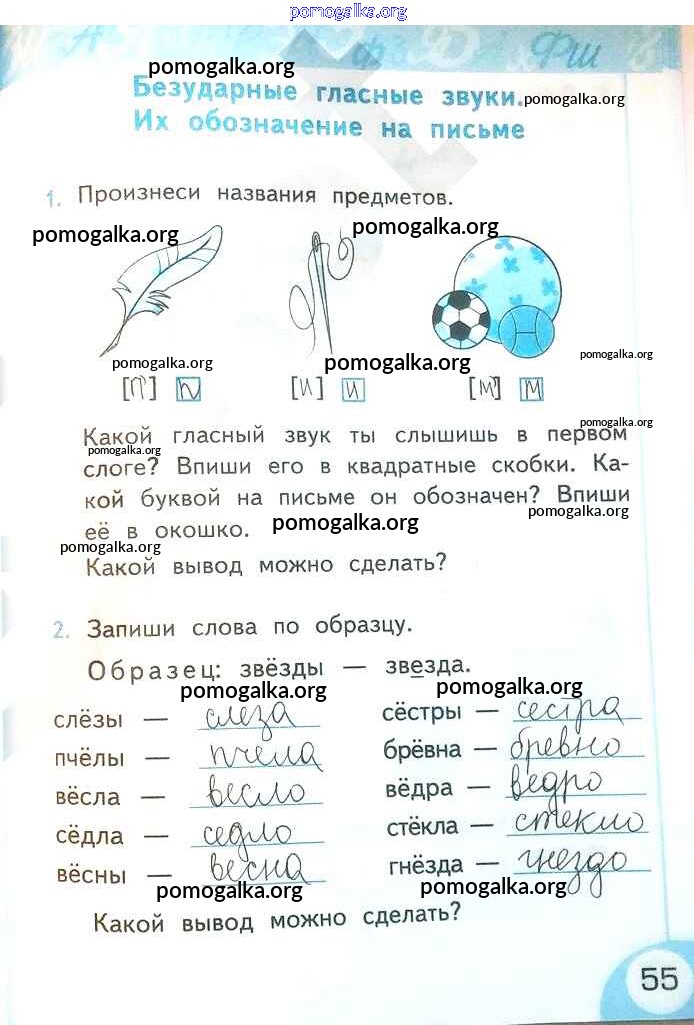 pomogalka.org
pomogalka.org
Безударные гласные звуки.
pomogalka.org
Их обозначение на письме
1. Произнеси названия предметов.
pomogalka.org
pomogalka.org
pomogalka.org
pomogalka.org
pomogalka.org
[П'] п [И] и [М'] м
pomogalka.org
Какой гласный звук ты слышишь в первом
pomogalka.org
слоге? Впиши его в квадратные скобки. Ка-
кой буквой на письме он обозначен? Впиши
pomogalka.org
её в окошко.
pomogalka.org
pomogalka.org
Какой вывод можно сделать?
2. Запиши слова по образцу.
Образец: звёзды — звезда.
pomogalka.org
pomogalka.org
слёзы — слеза сёстры — сестра
пчёлы — пчела брёвна — бревно
вёсла — весло вёдра — ведро
сёдла — седло стёкла — стекло
вёсны — весна гнёзда — гнездо
pomogalka.org
pomogalka.org
Какой вывод можно сделать?
55